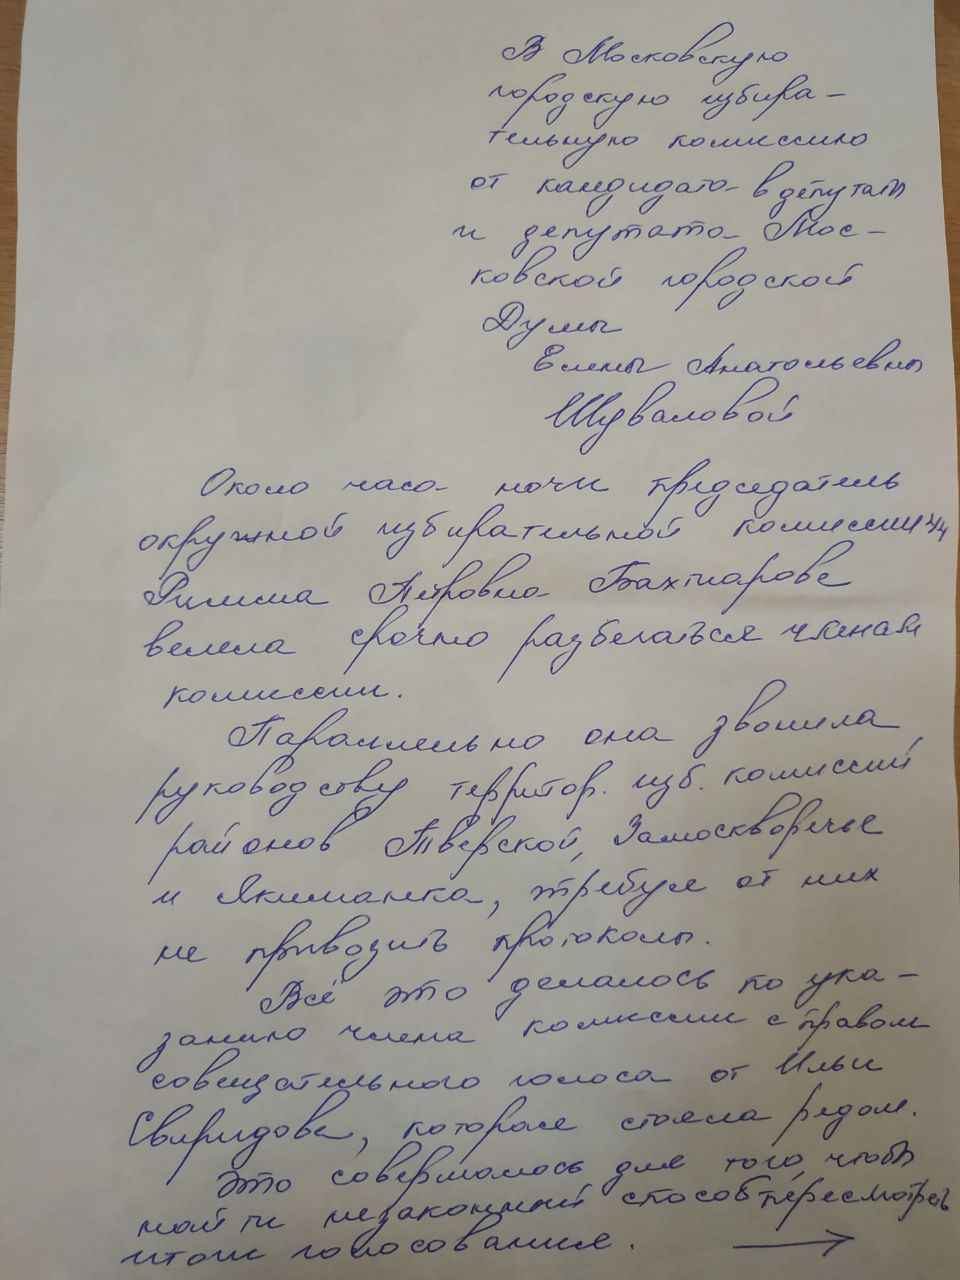 В Московскую
городскую избира-
тельную комиссию
от кандидата в депутаты
и депутата Мос-
ковской городской
Думы
Елены Анатольевны
Шуваловой
Около часа ночи председатель
окружной избирательной комиссии
Римма Петровна Бахтиарова
велела срочно разбегаться членам
комиссии.
Параллельно она звонила
руководству территор. изб. комиссий
районов Тверской, Замоскворечье
и Якиманка, требуя от них
не привозить протоколы.
Всё это делалось по ука-
занию члена комиссии с правом
совещательного голоса от Ильи
Свиридова, которая стояла рядом.
Это совершалось для того, чтобы
найти незаконный способ пересмотреть
итоги голосования. →